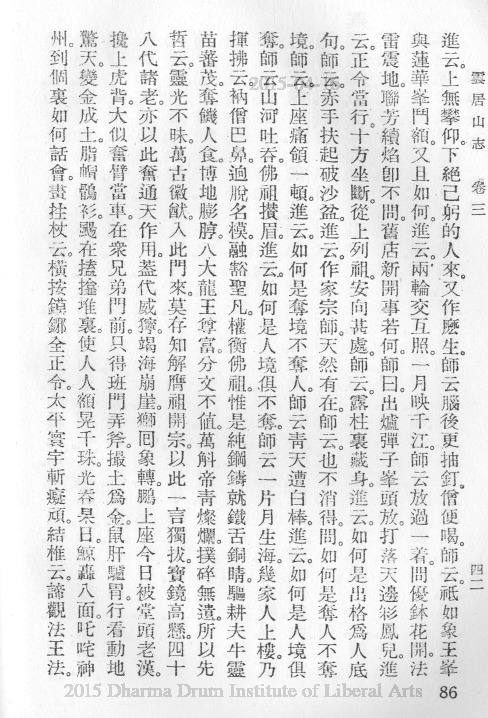 雲居山志 卷三 四二
進云上無攀仰下絕己躬的人來又作麼生師云腦後更抽釘僧便喝師云祇如象王峯
與蓮華峯鬥額又且如何進云兩輪交互照一月映千江師云放過一着問優鉢花開法
雷震地聯芳續焰卽不問舊店新開事若何師曰出爐彈子峯頭放打落天邊彩鳳兒進
云正令當行十方坐斷從上列祖安向甚處師云露柱裏藏身進云如何是出格爲人底
句師云赤手扶起破沙盆進云作家宗師天然有在師云也不消得問如何是奪人不奪
境師云上座痛領一頓進云如何是奪境不奪人師云靑天遭白棒進云如何是人境俱
奪師云山河吐吞佛祖攢眉進云如何是人境俱不奪師云一片月生海幾家人上樓乃
揮拂云衲僧巴鼻逈脫名模融豁聖凡權衡佛祖惟是純鋼鑄就鐵舌銅睛驅耕夫牛靈
苗蕃茂奪饑人食博地膨脝八大龍王尊富分文不値萬斛帝靑燦爛撲碎無遺所以先
哲云靈光不昧萬古徽猷入此門來莫存知解鴈祖開宗以此一言獨拔寶鏡高懸四十
八代諸老亦以此奮通天作用蓋代威獰竭海崩崖獅回象轉鵬上座今日被堂頭老漢
攙上虎背大似奮臂當車在衆兄弟門前只得班門弄斧撮土爲金鼠肝驢胃行看動地
驚天變金成土脂帽鶻衫颺在揸搕堆裏使人人額晃千珠光吞杲日鯨轟八面吒咤神
州到個裏如何話會晝拄杖云橫按鏌鎁全正令太平寰宇斬癡頑結椎云諦觀法王法
86
2015 Dharma Drum Institute of Liberal Arts